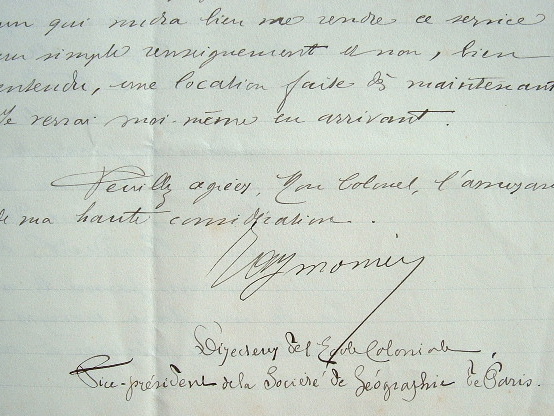 un qui voudra bien me rendre ce service
un simple renseignement et non, bien
entendu, une location faite dès maintenant
Je verrai moi-même en arrivant.
Veuillez agréer, Mon Colonel, l'assuran
de ma haute considération.
Aymonier
Directeur de l'Ecole Coloniale,
Vice-président de la Société de Géographie de Paris.